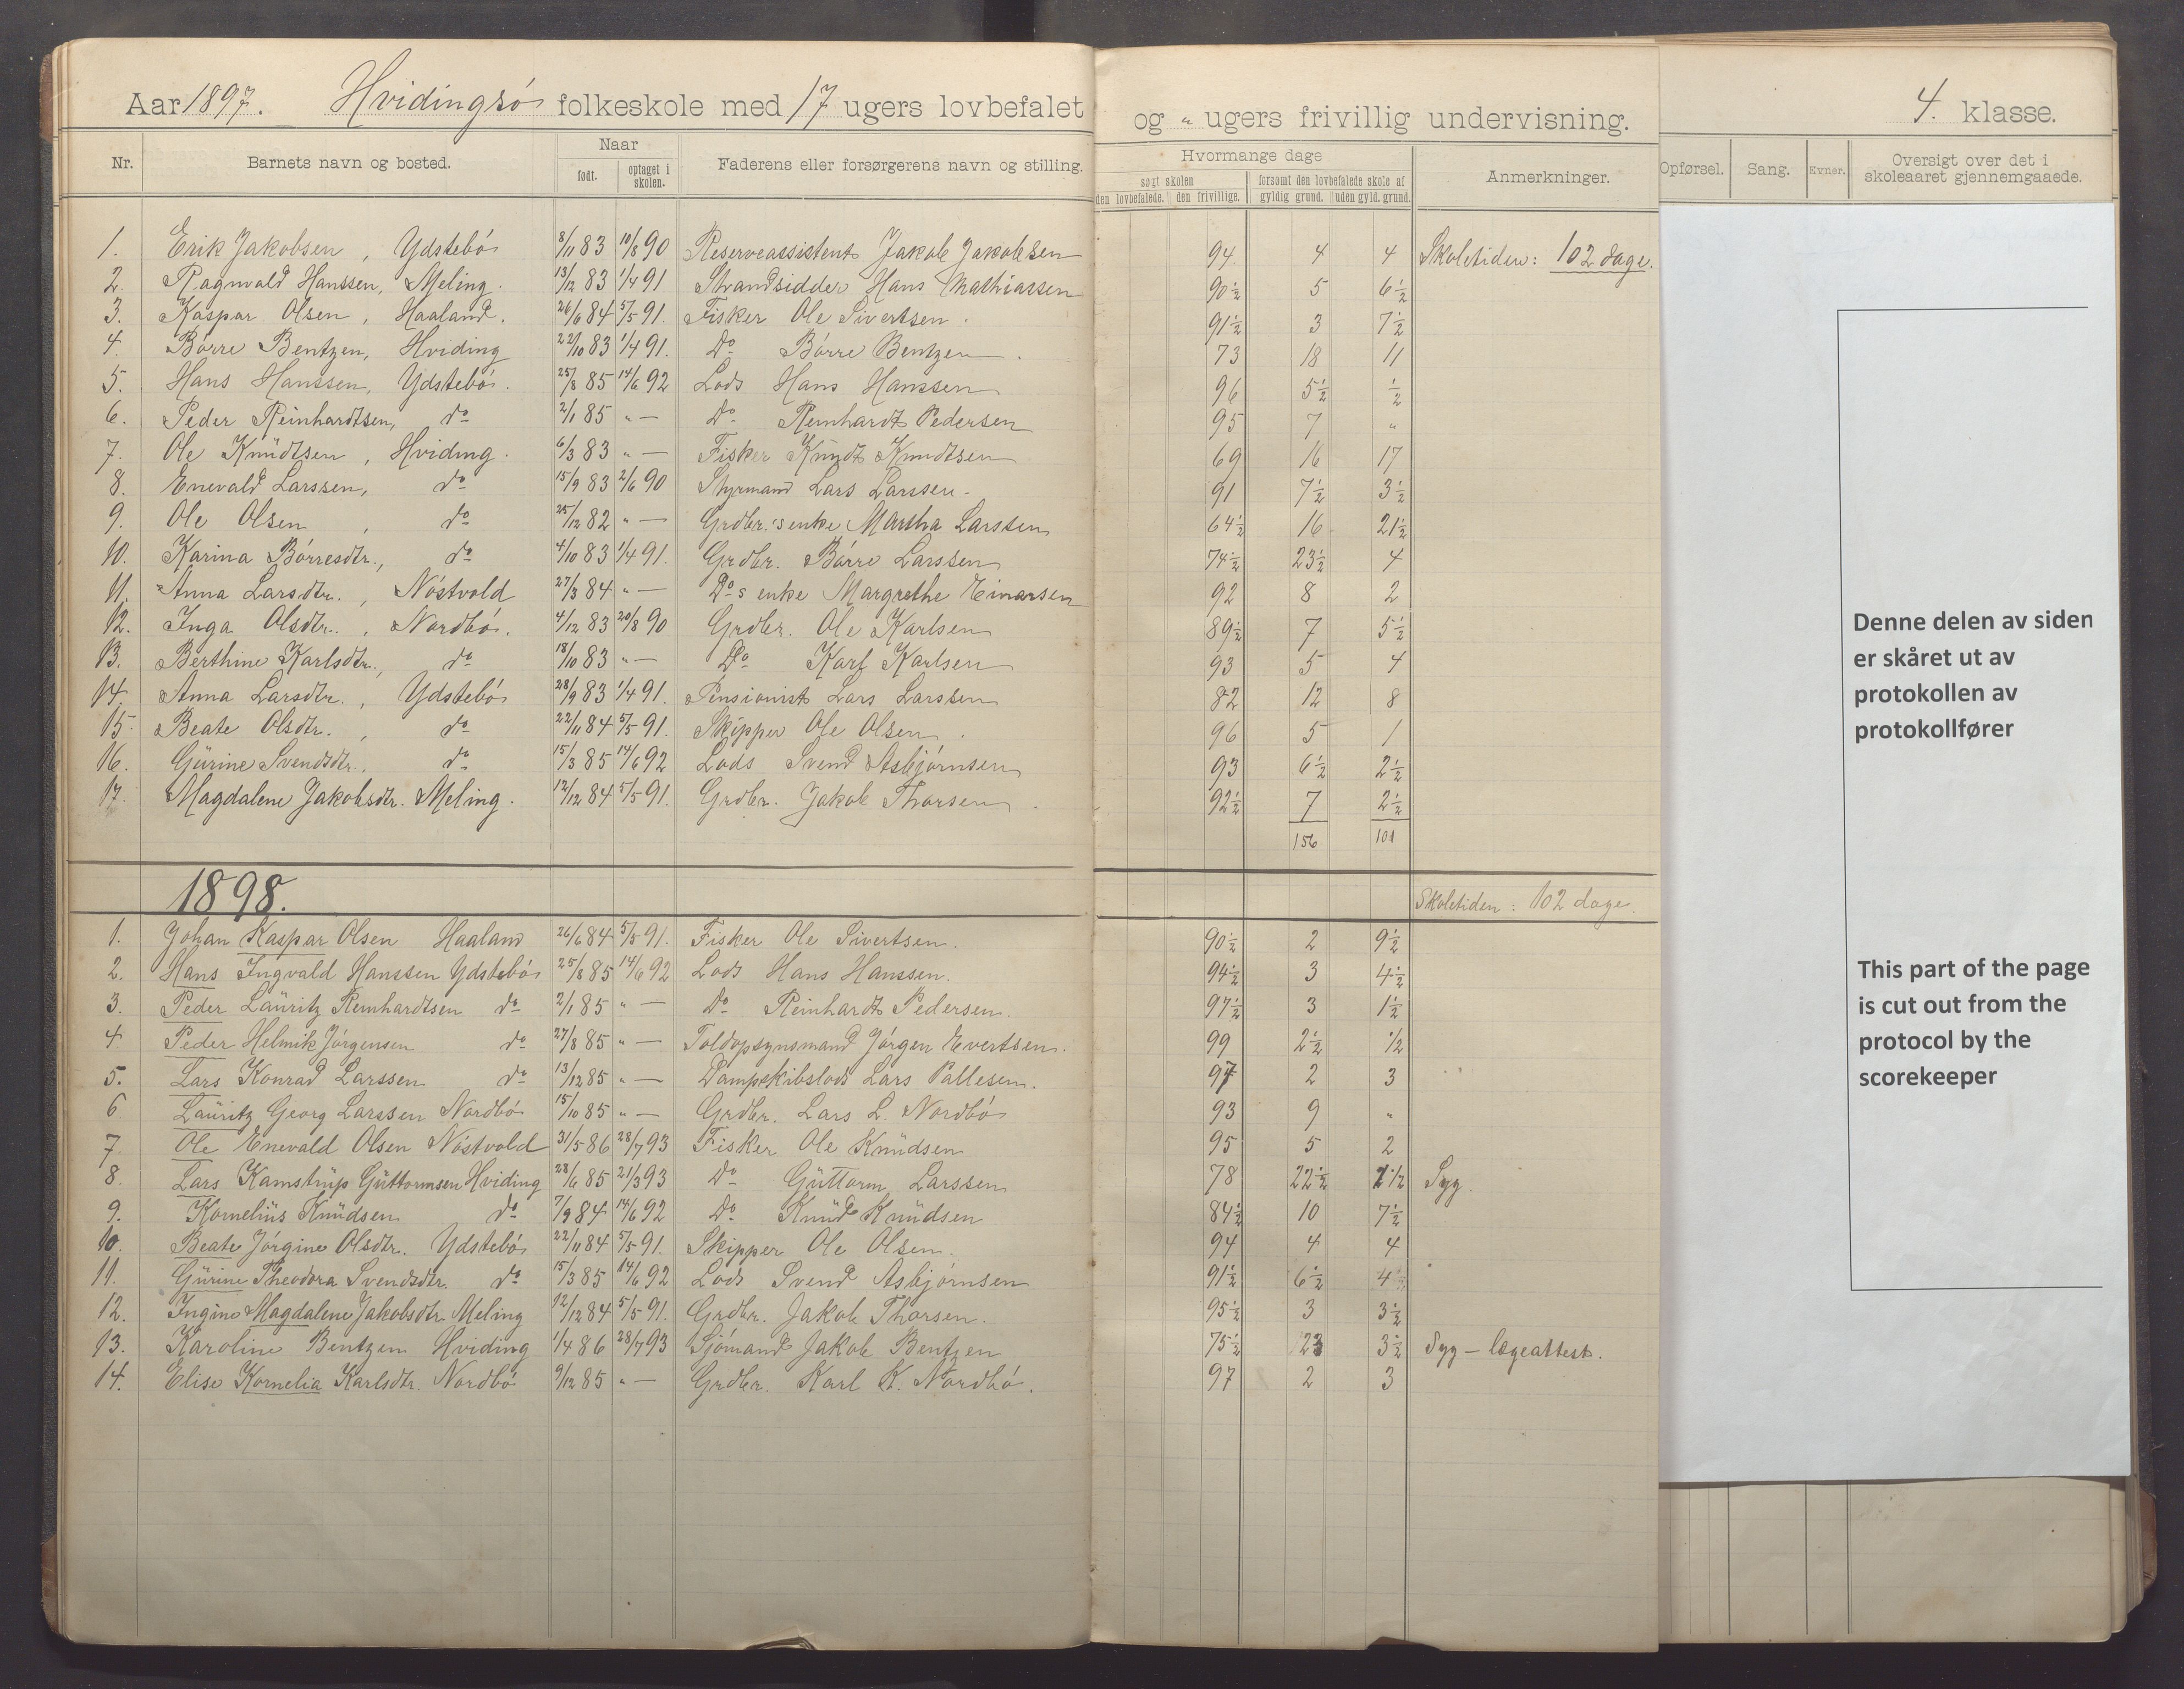 Aar 1897. Hvidingsö folkeskole med 17 ugers lovbefalet og " ugers frivillig undervisning. 4. klasse.
Nr. Barnets navn og bosted. Naar Faderens eller forsørgerens navn og stilling. Hvormange dage Anmerkninger. Opførsel. Sang. Evner. Oversigt over det i skoleaaret gjennemgaaede.
født. optaget i skolen. søgt skolen forsømt den lovbefalede skole af
den lovbefalede. den frivillige. gyldig grund. uden gyld. grund.
1. Erik Jakobsen, Ydstebö 8/11 83 10/8 90 Reserveassistent Jakob Jakobsen 94 4 4 Skoletiden: 102 dage.
2. Ragnvald Hanssen, Meling. 13/12 83 1/4 91 Strandsidder Hans Mathiassen 90 1/2 5 6 1/2
3. Kaspar Olsen, Haaland. 26/6 84 5/5 91. Fisker Ole Sivertsen. 91 1/2 3 7 1/2
4. Börre Bentzen, Hviding 22/10 83 1/4 91. Do Börre Bentzen. 73 18 11
5. Hans Hanssen, Ydstebö. 25/8 85 14/6 92 Lods Hans Hanssen 96 5 1/2 1/2
6. Peder Reinhardtsen, do 2/1 85 " — Do Reinhardt Pedersen 95 7 "
7. Ole Knudtsen, Hviding. 6/3 83 " — Fisker Knudt Knudtsen 69 16 17
8. Enevald Larssen, do 15/9 83 2/6 90 Styrmand Lars Larssen. 91 7 1/2 3 1/2
9. Ole Olsen, do 25/12 82 " — Grdbr.'s enke Martha Larssen 64 1/2 16 21 1/2
10. Karina Börresdtr., do 4/10 83 1/4 91. Grdbr. Börre Larssen 74 1/2 23 1/2 4
11. Anna Larsdtr., Nöstvold 27/3 84 " — Do s enke Margrethe Einarsen 92 8 2
12. Inga Olsdtr., Nordbö. 4/12 83 20/8 90 Grdbr. Ole Karlsen 89 1/2 7 5 1/2
13. Berthine Karlsdtr., do 18/10 83 " — Do Karl Karlsen 93 5 4
14. Anna Larsdtr., Ydstebö 28/9 83 1/4 91. Pensionist Lars Larssen 82 12 8
15. Beate Olsdtr., do 22/11 84 5/5 91. Skipper Ole Olsen. 96 5 1
16. Gurine Svendsdtr., do 15/3 85 14/6 92 Lods Svend Asbjörnsen 93 6 1/2 2 1/2
17. Magdalene Jakobsdtr. Meling. 12/12 84 5/5 91. Grdbr. Jakob Thorsen. 92 1/2 7 2 1/2
156 101
1898. Skoletiden: 102 dage.
1. Johan Kaspar Olsen Haaland 26/6 84 5/5 91. Fisker Ole Sivertsen. 90 1/2 2 9 1/2
2. Hans Ingvald Hanssen Ydstebö 25/8 85 14/6 92 Lods Hans Hanssen. 94 1/2 3 4 1/2
3. Peder Lauritz Reinhardtsen do 2/1 85 " — Do Reinhardt Pedersen. 97 1/2 3 1 1/2
4. Peder Helmik Jörgensen do 27/8 85 " — Toldopsynsmand Jörgen Evertsen. 99 2 1/2 1/2
5. Lars Konrad Larssen do 13/12 85 " — Dampskibslods Lars Pallesen. 97 2 3
6. Lauritz Georg Larssen Nordbö 15/10 85 " — Grdbr. Lars L. Nordbö 93 9 "
7. Ole Enevald Olsen Nöstvold 31/5 86 28/7 93 Fisker Ole Knudsen 95 5 2
8. Lars Kamstrup Guttormsen Hviding 28/6 85 21/3 93 Do Guttorm Larssen 78 22 1/2 1 1/2 Syg.
9. Kornelius Knudsen do 7/9 84 14/6 92 Do Knud Knudsen 84 1/2 10 7 1/2
10. Beate Jörgine Olsdtr. Ydstebö 22/11 84 5/5 91. Skipper Ole Olsen. 94 4 4
11. Gurine Theodora Svendsdtr. do 15/3 85 14/6 92 Lods Svend Asbjörnsen 91 1/2 6 1/2 4
12. Ingine Magdalene Jakobsdtr. Meling 12/12 84 5/5 91. Grdbr. Jakob Thorsen. 95 1/2 3 3 1/2
13. Karoline Bentzen Hviding 1/4 86 28/7 93 Sjömand Jakob Bentzen 75 1/2 23 3 1/2 Syg – lægeattest.
14. Elise Kornelia Karlsdtr. Nordbö 9/12 85 " — Grdbr. Karl K. Nordbö. 97 2 3
Denne delen av siden
er skåret ut av
protokollen av
protokollfører
This part of the page
is cut out from the
protocol by the
scorekeeper